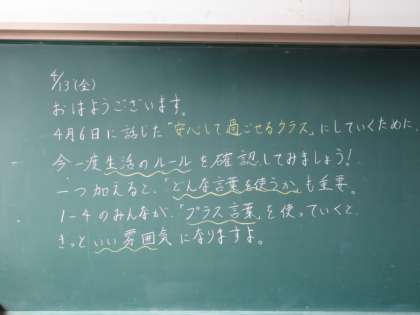 4/13(金)
おはようございます。
4月6日に話した「安心して過ごせるクラス」にしていくために、
今一度生活のルールを確認してみましょう!
一つ加えると、「どんな言葉を使うか」も重要。
1-4のみんなが、「プラス言葉」を使っていくと、
きっといい雰囲気になりますよ。